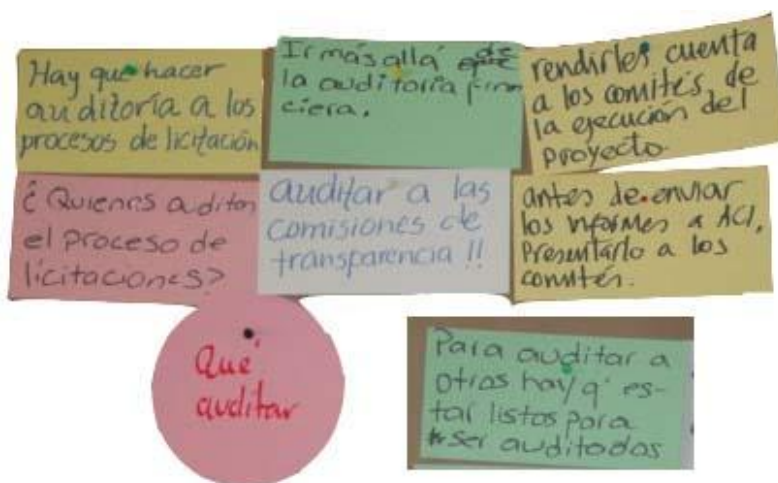 Hay que hacer
auditoría a los
procesos de licitación
Ir más allá de
la auditoría finan
ciera.
rendirles cuenta
a los comités de
la ejecución del
proyecto.
¿Quienes auditan
el proceso de
licitaciones?
auditar a las
comisiones de
transparencia !!
antes de enviar
los informes a ACI,
Presentarlo a los
comités.
Qué
auditar
Para auditar a
otros hay q' es-
tar listos para
ser auditados